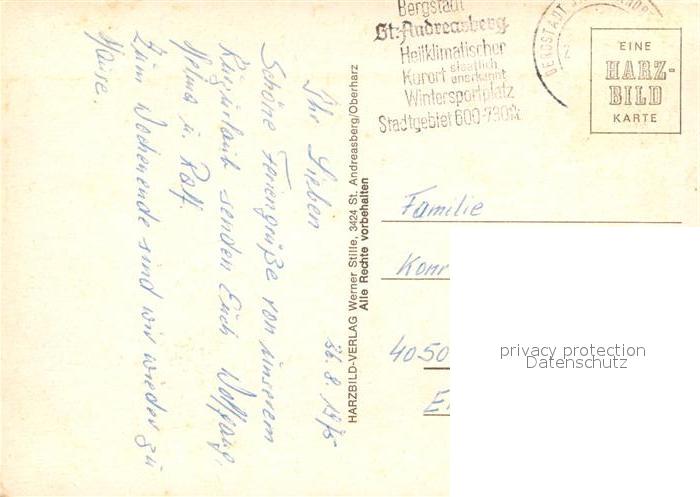 Bergstadt
St. Andreasberg
Heilklimatischer
Kurort staatlich anerkannt
Wintersportplatz
Stadtgebiet 600-790m
BERGSTADT
EINE
HARZ-
BILD
KARTE
Ihr Lieben
26. 8. 1975
Schöne Feriengrüße von unserem
Kurzurlaub senden Euch Wolfgang,
Helma u. Ralf
Zum Wochenende sind wir wieder zu
Hause.
HARZBILD-VERLAG Werner Stille, 3424 St. Andreasberg/Oberharz
Alle Rechte vorbehalten
Familie
Konr
4050
privacy protection
Datenschutz